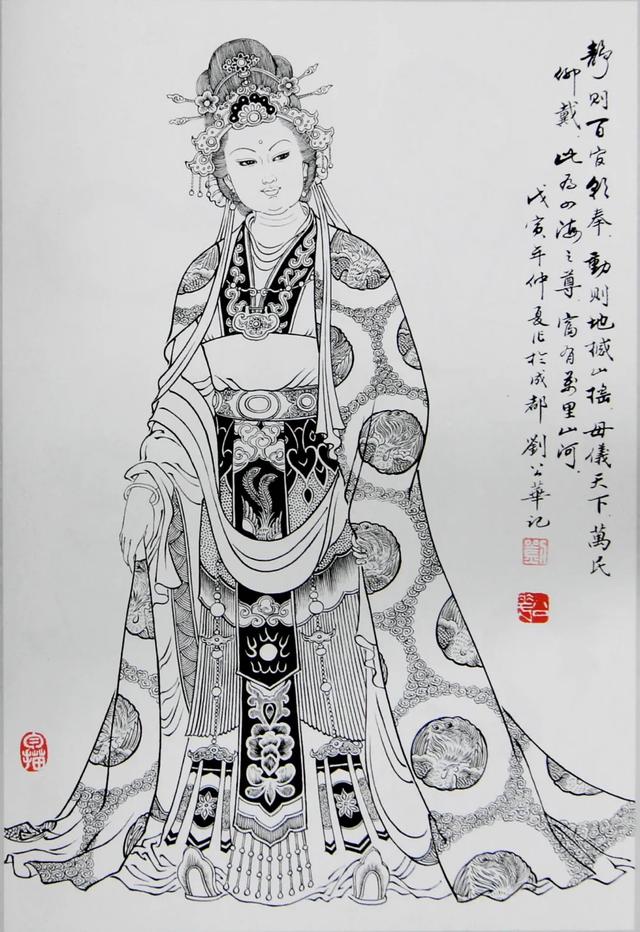 靜則百官朝奉.動則地撼山摇.母儀天下.萬民
仰戴.此为四海之尊.富有萬里山河.
戊寅年仲夏作於成都 劉公華记
白描